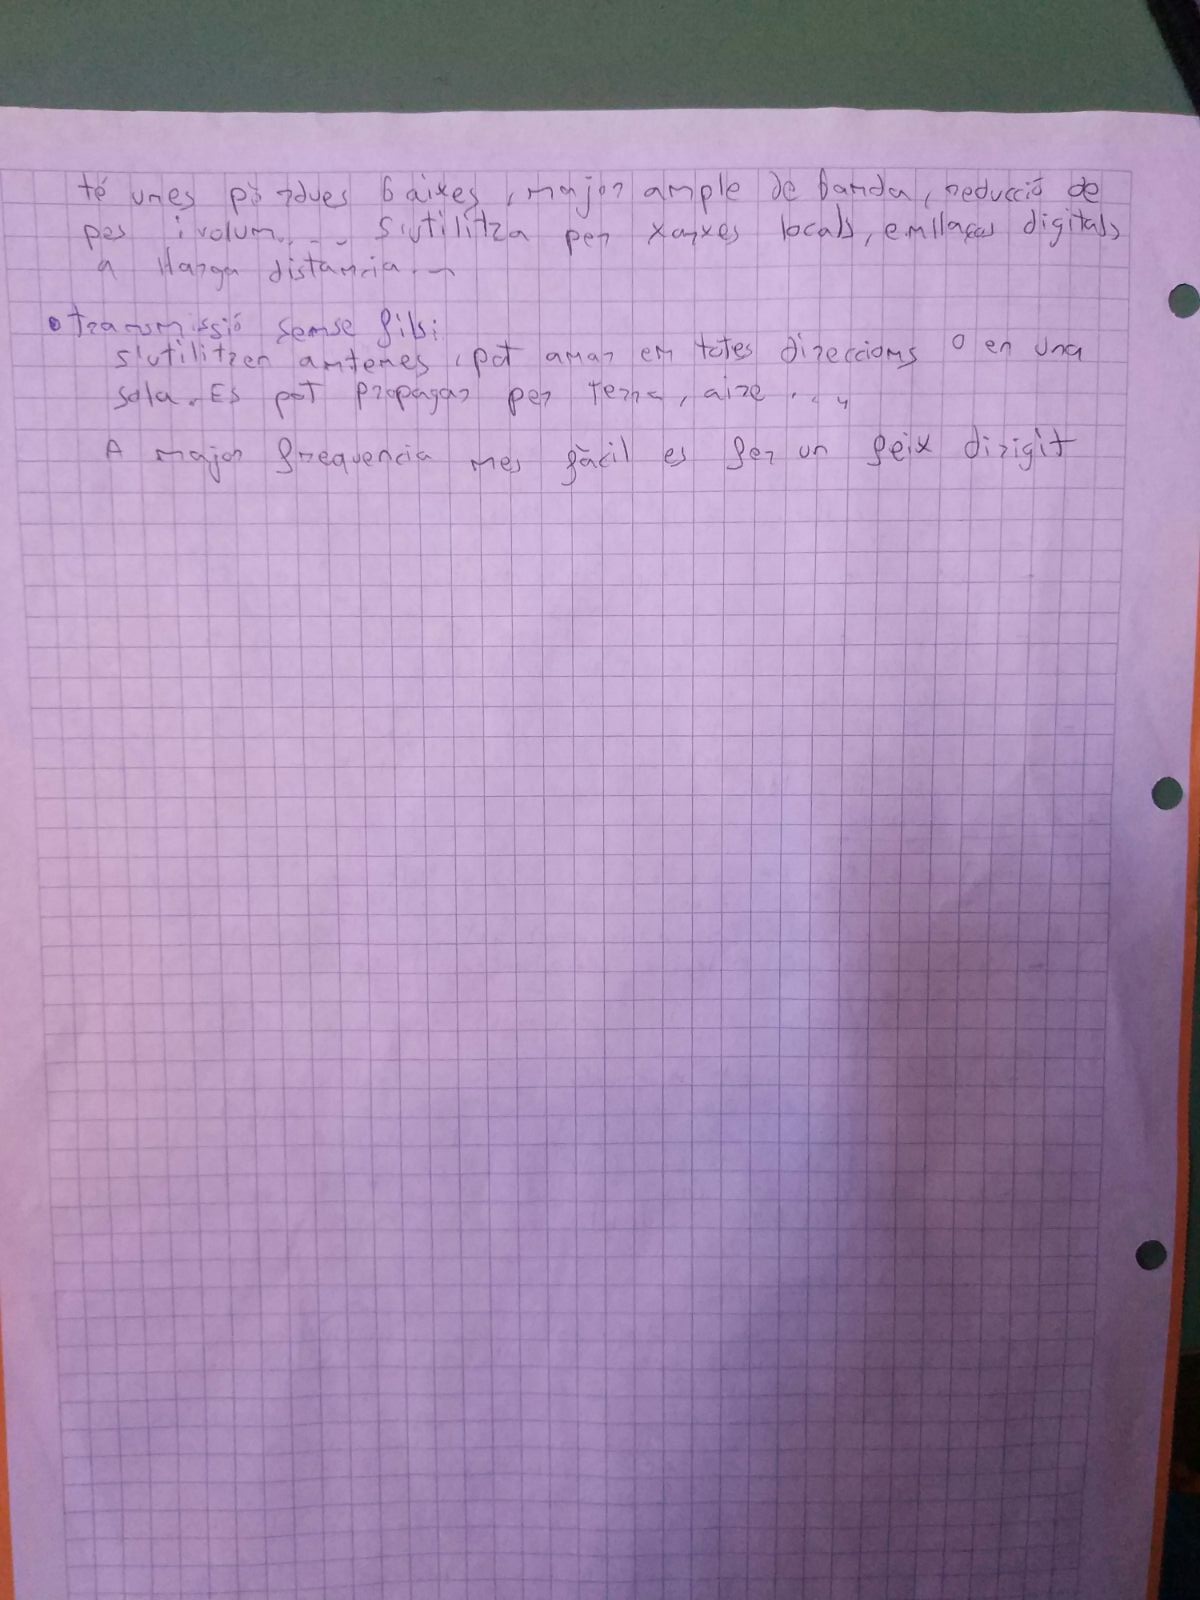 té unes pèrdues baixes, major ample de banda, reducció de
pes i volum... S'utilitza per xarxes locals, enllaços digitals
a llarga distancia...
• transmissió sense fils:
s'utilitzen antenes, pot anar en totes direccions o en una
sola. Es pot propagar per terra, aire...
A major frequencia mes fàcil es fer un feix dirigit